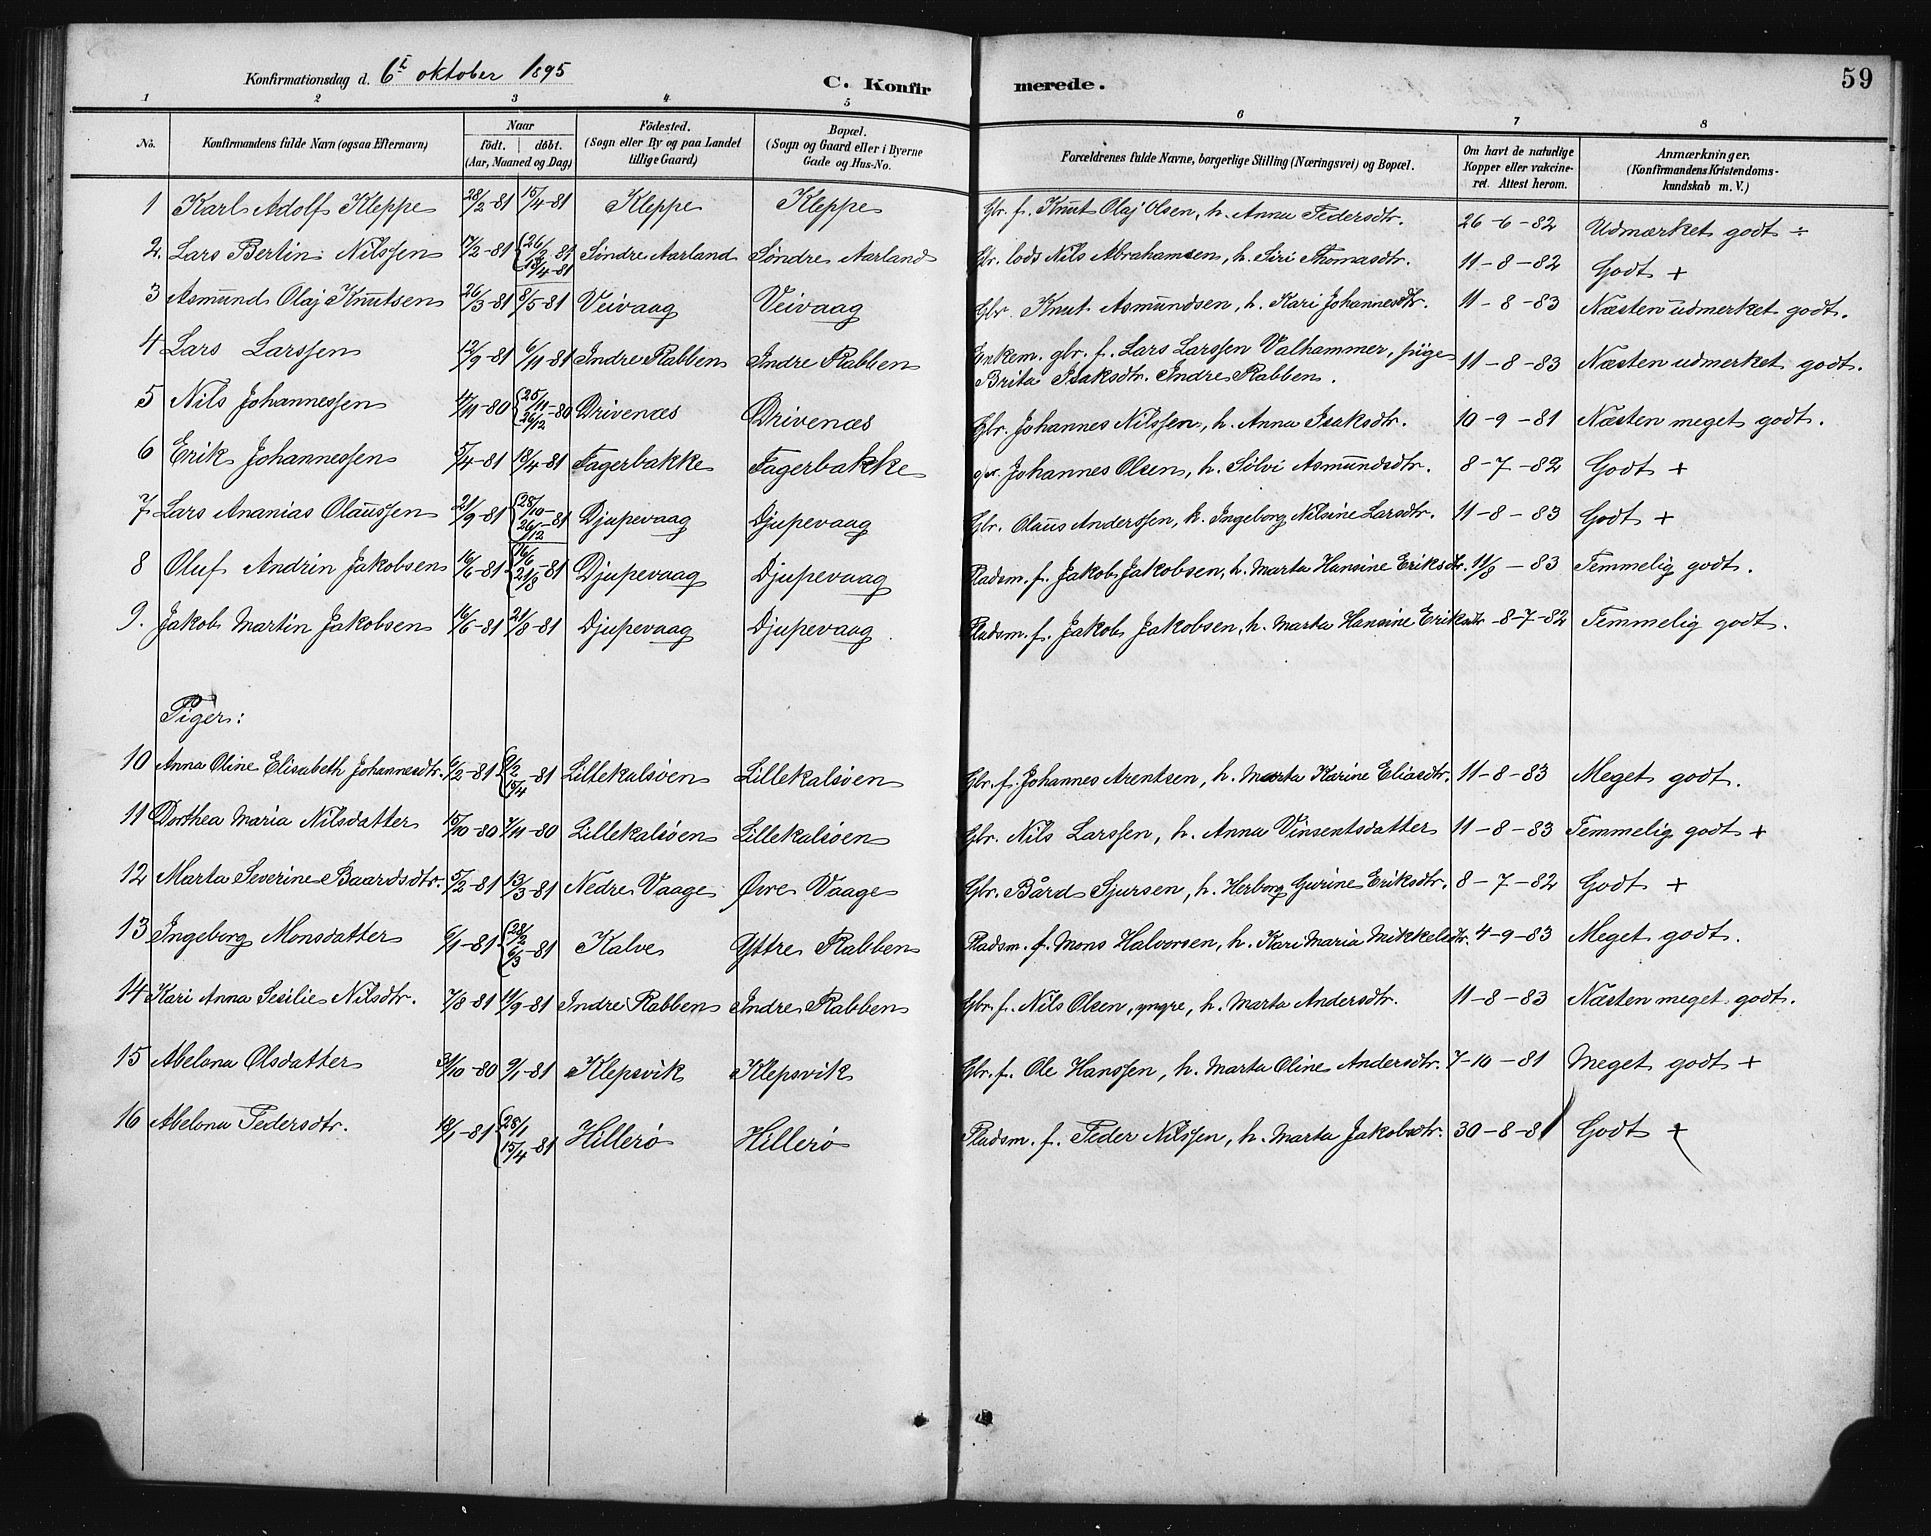 59
Konfirmationsdag d. 6te oktober 1895
C. Konfirmerede.
1 2 3 4 5 6 7 8
No. Konfirmandens fulde Navn (ogsaa Efternavn) Naar födt. döbt. (Aar, Maaned og Dag) Födested. (Sogn eller By og paa Landet tillige Gaard) Bopæl. (Sogn og Gaard eller i Byerne Gade og Hus-No. Forældrenes fulde Navne, borgerlige Stilling (Næringsvei) og Bopæl. Om havt de naturlige Kopper eller vakcineret. Attest herom. Anmærkninger. (Konfirmandens Kristendomskundskab m. V.)
1 Karl Adolf Kleppe 28/2-81 15/4-81 Kleppe Kleppe Gbr. f. Knut Olaj Olsen, h. Anna Pedersdtr. 26-6-82 Udmærket godt ÷
2. Lars Bertin Nilssen 17/2-81 {26/2-81 18/4-81 Söndre Aarland Söndre Aarland Gbr. lods Nils Abrahamsen, h. Siri Thomasdtr. 11-8-82 Godt +
3 Asmund Olaj Knutsen 26/3-81 8/5-81 Veivaag Veivaag Gbr. Knut Asmundsen, h. Kari Johannesdtr. 11-8-83 Næsten udmerket godt.
4 Lars Larssen 12/9-81 6/11-81 Indre Rabben Indre Rabben Enkem. gbr. f. Lars Larssen Valhammer, pige
Brita Isaksdtr. Indre Rabben. 11-8-83 Næsten udmerket godt.
5 Nils Johannessen 4/11-80 {25/11-80 26/12 Drivenæs Drivenæs Gbr. Johannes Nilssen, h. Anna Isaksdtr. 10-9-81 Næsten meget godt.
6 Erik Johannessen 5/4-81 18/4-81 Fagerbakke Fagerbakke Johannes Olsen, h. Sölvi Asmundsdtr. 8-7-82 Godt +
7 Lars Ananias Olaussen 21/9-81 {28/10- 26/12-81 Djupevaag Djupevaag Gbr. Olaus Anderssen, h. Ingeborg Nilsine Larsdtr. 11-8-83 Godt +
8 Oluf Andrin Jakobsen 16/6-81 {16/6 21/8-81 Djupevaag Djupevaag Pladsm. f. Jakob Jakobsen, h. Marta Hansine Eriksdtr. 11/8-83 Temmelig godt.
9. Jakob Martin Jakobsen 16/6-81 21/8-81 Djupevaag Djupevaag. Pladsm. f. Jakob Jakobsen, h. Marta Hansine Eriksdtr 8-7-82 Temmelig godt.
Piger:
10 Anna Oline Elisabeth Johannesdtr. 6/2-81 {9/2 19/4-81 Lillekalsöen Lillekalsöen Gbr. f. Johannes Arentsen, h. Marta Karine Eliasdtr. 11-8-83 Meget godt.
11 Dorthea Maria Nilsdatter 15/10-80 7/11-80 Lillekalsöen Lillekalsöen Gbr. Nils Larssen, h. Anna Vinsentsdatter 11-8-83 Temmelig godt +
12 Marta Severine Baardsdtr. 5/2-81 13/3-81 Nedre Vaage Øvre Vaage Gbr. Bård Sjursen, h. Herborg Gurine Eriksdtr. 8-7-82 Godt +
13 Ingeborg Monsdatter 6/1-81 {28/2 6/3-81 Kalve Yttre Rabben Pladsm. f. Mons Halvorsen, h. Kari Maria Mikkelsdtr. 4-9-83 Meget godt.
14 Kari Anna Sesilie Nilsdtr. 7/8-81 11/9-81 Indre Rabben Indre Rabben Gbr. f. Nils Olsen, yngre, h. Marta Andersdtr. 11-8-83 Næsten meget godt.
15 Abelona Olsdatter 31/10-80 9/1-81 Klepsvik Klepsvik Gbr. f. Ole Hanssen, h. Marta Oline Andersdtr. 7-10-81 Meget godt +
16 Abelona Pedersdtr. 18/1-81 {28/1 15/4-81 Hillerö Hillerö Pladsm. f. Peder Nilssen, h. Marta Jakobsdtr. 30-8-81 Godt +